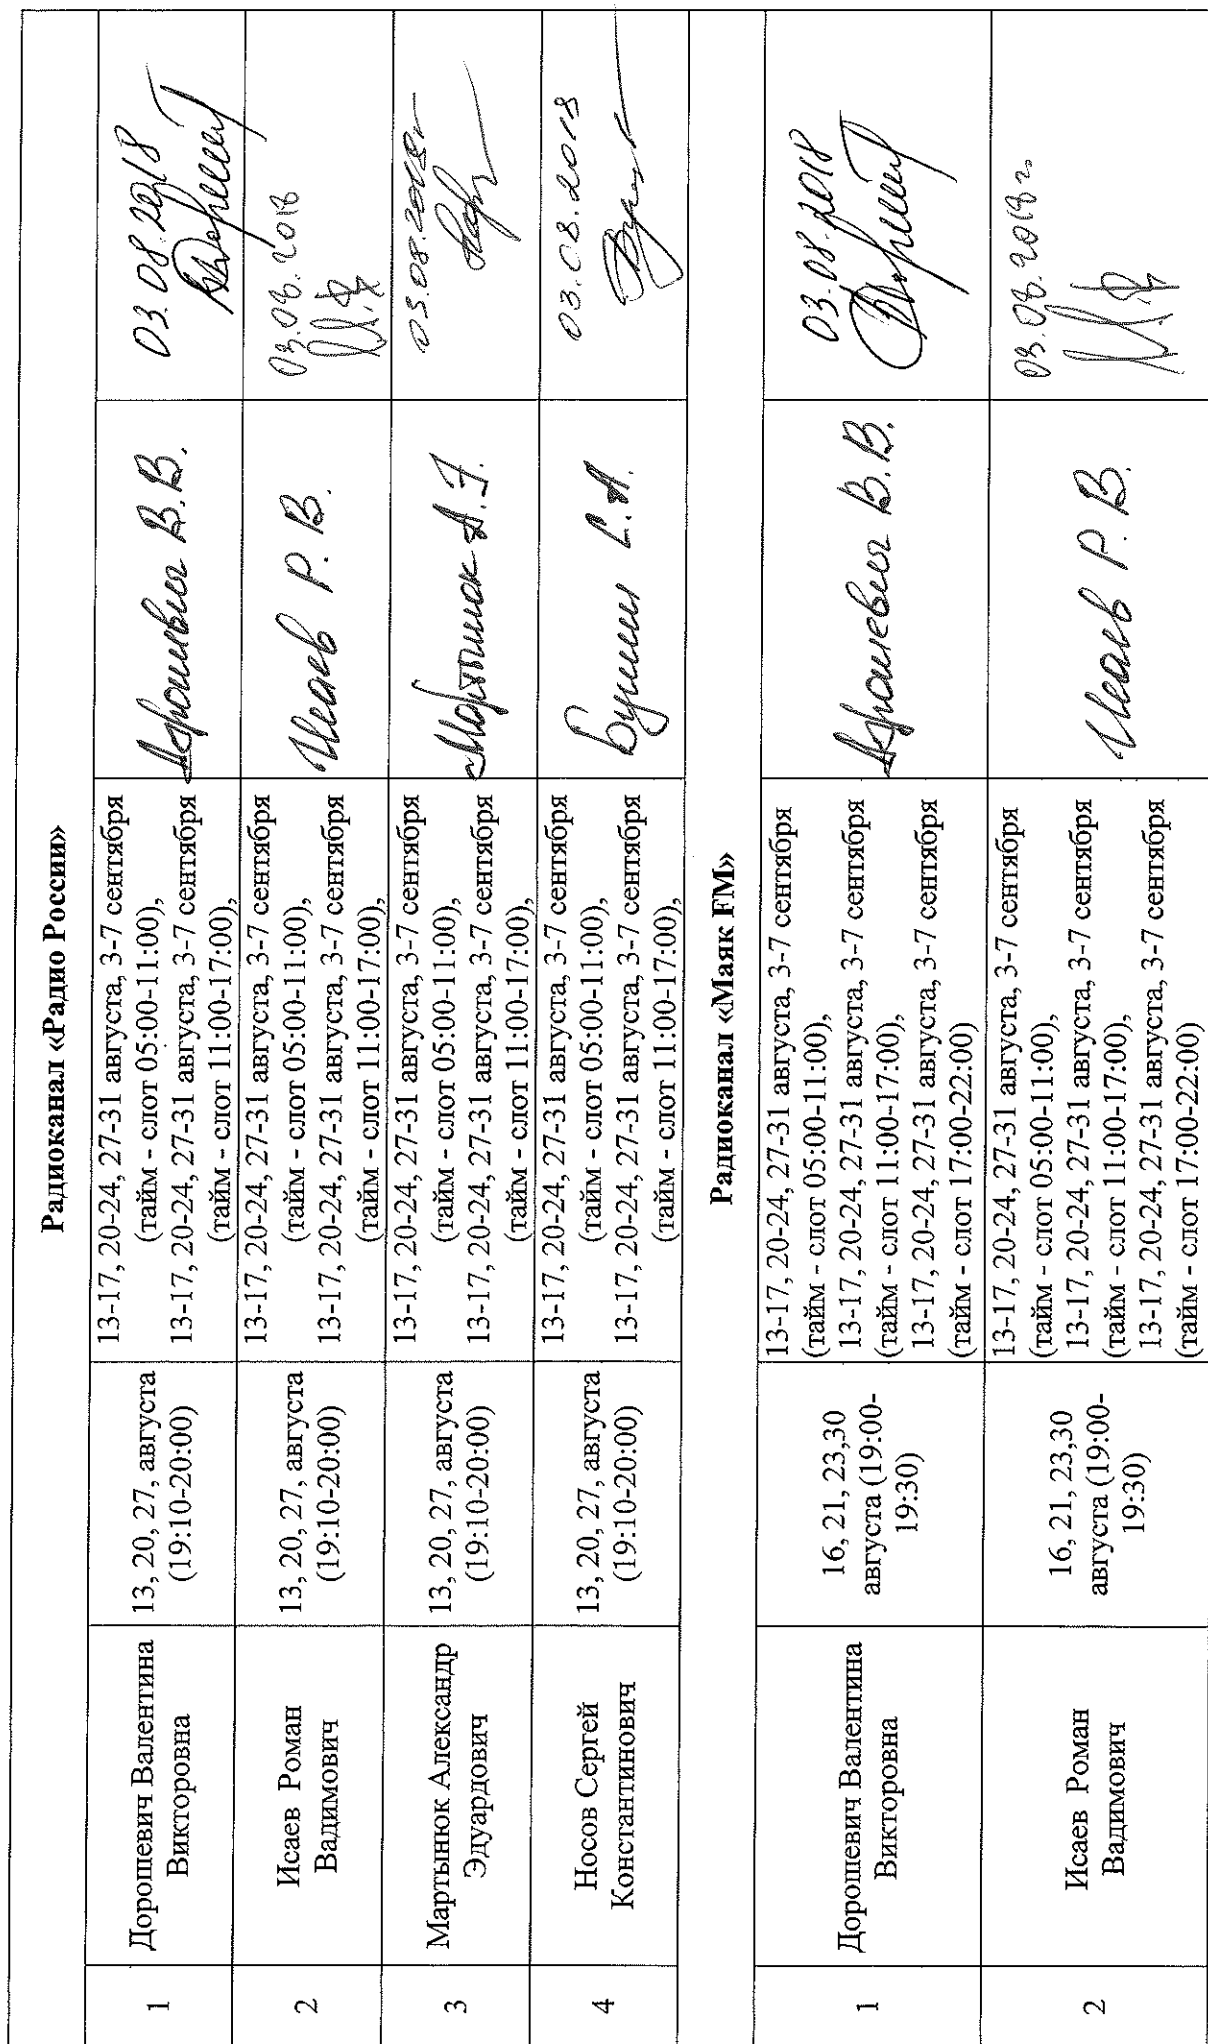 Радиоканал «Радио России»
1
Дорошевич Валентина
Викторовна
13, 20, 27, августа
(19:10-20:00)
13-17, 20-24, 27-31 августа, 3-7 сентября
(тайм - слот 05:00-11:00),
13-17, 20-24, 27-31 августа, 3-7 сентября
(тайм - слот 11:00-17:00),
Дорошевич В.В.
03.08.2018
2
Исаев Роман
Вадимович
13, 20, 27, августа
(19:10-20:00)
13-17, 20-24, 27-31 августа, 3-7 сентября
(тайм - слот 05:00-11:00),
13-17, 20-24, 27-31 августа, 3-7 сентября
(тайм - слот 11:00-17:00),
Исаев Р. В.
03.08.2018
3
Мартынюк Александр
Эдуардович
13, 20, 27, августа
(19:10-20:00)
13-17, 20-24, 27-31 августа, 3-7 сентября
(тайм - слот 05:00-11:00),
13-17, 20-24, 27-31 августа, 3-7 сентября
(тайм - слот 11:00-17:00),
Мартынюк А.Э.
03.08.2018г
4
Носов Сергей
Константинович
13, 20, 27, августа
(19:10-20:00)
13-17, 20-24, 27-31 августа, 3-7 сентября
(тайм - слот 05:00-11:00),
13-17, 20-24, 27-31 августа, 3-7 сентября
(тайм - слот 11:00-17:00),
С.А.
03.08.2018
Радиоканал «Маяк FM»
1
Дорошевич Валентина
Викторовна
16, 21, 23,30
августа (19:00-
19:30)
13-17, 20-24, 27-31 августа, 3-7 сентября
(тайм - слот 05:00-11:00),
13-17, 20-24, 27-31 августа, 3-7 сентября
(тайм - слот 11:00-17:00),
13-17, 20-24, 27-31 августа, 3-7 сентября
(тайм - слот 17:00-22:00)
Дорошевич В.В.
03.08.2018
2
Исаев Роман
Вадимович
16, 21, 23,30
августа (19:00-
19:30)
13-17, 20-24, 27-31 августа, 3-7 сентября
(тайм - слот 05:00-11:00),
13-17, 20-24, 27-31 августа, 3-7 сентября
(тайм - слот 11:00-17:00),
13-17, 20-24, 27-31 августа, 3-7 сентября
(тайм - слот 17:00-22:00)
Исаев Р. В.
03.08.2018г.